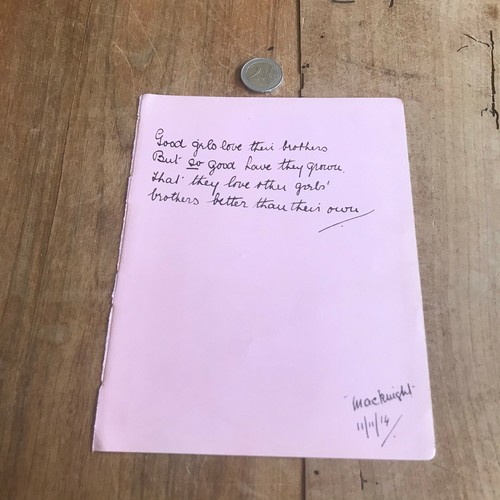 Good girls love their brothers
But so good have they grown.
That they love other girls'
brothers better than their own
"Macknight"
11/11/14